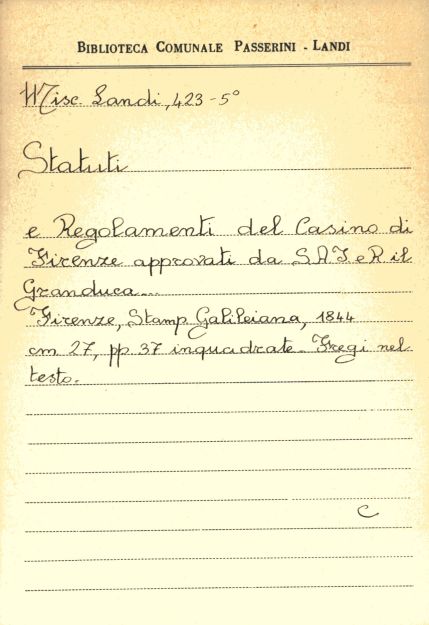 BIBLIOTECA COMUNALE PASSERINI - LANDI
Misc. Landi, 423-5°
Statuti
e Regolamenti del Casino di
Firenze approvati da S.A.I. e R. il
Granduca...
Firenze, Stamp. Galileiana, 1844
cm 27, pp 37 inquadrate. Fregi nel
testo.
C